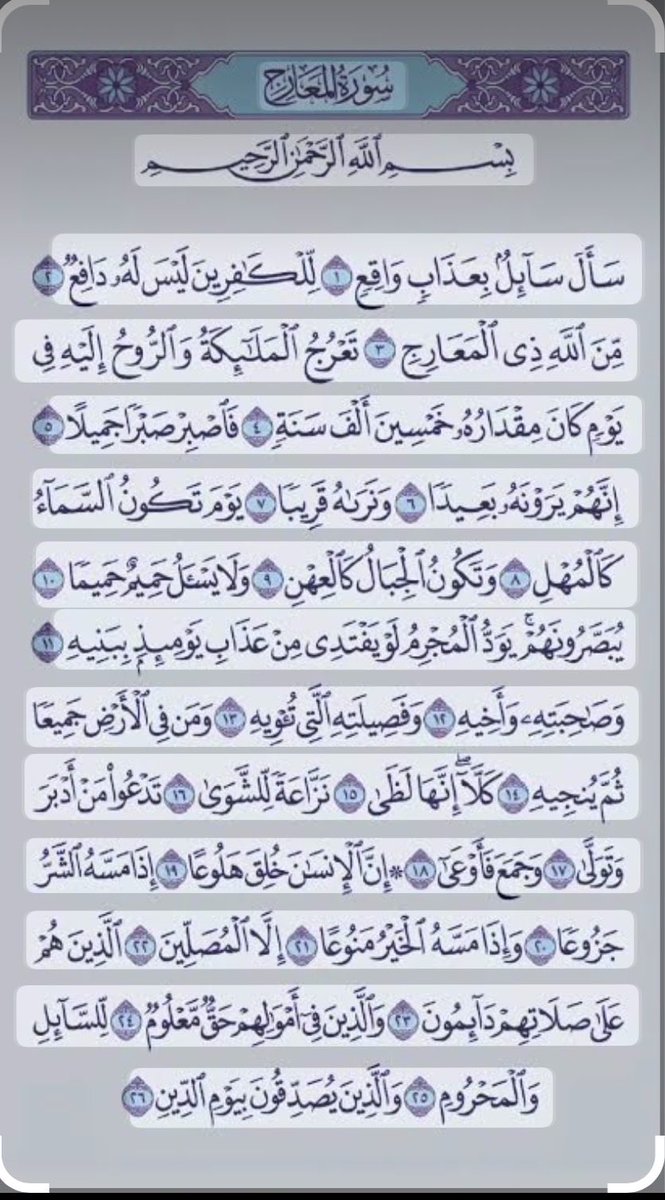 سُورَةُ المَعَارِجِ
بِسْمِ ٱللَّهِ ٱلرَّحْمَٰنِ ٱلرَّحِيمِ
سَأَلَ سَآئِلٌۢ بِعَذَابٍ وَاقِعٍ ١ لِّلْكَٰفِرِينَ لَيْسَ لَهُۥ دَافِعٌ ٢
مِّنَ ٱللَّهِ ذِى ٱلْمَعَارِجِ ٣ تَعْرُجُ ٱلْمَلَٰٓئِكَةُ وَٱلرُّوحُ إِلَيْهِ فِى
يَوْمٍ كَانَ مِقْدَارُهُۥ خَمْسِينَ أَلْفَ سَنَةٍ ٤ فَٱصْبِرْ صَبْرًا جَمِيلًا ٥
إِنَّهُمْ يَرَوْنَهُۥ بَعِيدًا ٦ وَنَرَىٰهُ قَرِيبًا ٧ يَوْمَ تَكُونُ ٱلسَّمَآءُ
كَٱلْمُهْلِ ٨ وَتَكُونُ ٱلْجِبَالُ كَٱلْعِهْنِ ٩ وَلَا يَسْـَٔلُ حَمِيمٌ حَمِيمًا ١٠
يُبَصَّرُونَهُمْ ۚ يَوَدُّ ٱلْمُجْرِمُ لَوْ يَفْتَدِى مِنْ عَذَابِ يَوْمِئِذٍۭ بِبَنِيهِ ١١
وَصَٰحِبَتِهِۦ وَأَخِيهِ ١٢ وَفَصِيلَتِهِ ٱلَّتِى تُـْٔوِيهِ ١٣ وَمَن فِى ٱلْأَرْضِ جَمِيعًا
ثُمَّ يُنجِيهِ ١٤ كَلَّآ ۖ إِنَّهَا لَظَىٰ ١٥ نَزَّاعَةً لِّلشَّوَىٰ ١٦ تَدْعُوا۟ مَنْ أَدْبَرَ
وَتَوَلَّىٰ ١٧ وَجَمَعَ فَأَوْعَىٰٓ ١٨ * إِنَّ ٱلْإِنسَٰنَ خُلِقَ هَلُوعًا ١٩ إِذَا مَسَّهُ ٱلشَّرُّ
جَزُوعًا ٢٠ وَإِذَا مَسَّهُ ٱلْخَيْرُ مَنُوعًا ٢١ إِلَّا ٱلْمُصَلِّينَ ٢٢ ٱلَّذِينَ هُمْ
عَلَىٰ صَلَاتِهِمْ دَآئِمُونَ ٢٣ وَٱلَّذِينَ فِىٓ أَمْوَٰلِهِمْ حَقٌّ مَّعْلُومٌ ٢٤ لِّلسَّآئِلِ
وَٱلْمَحْرُومِ ٢٥ وَٱلَّذِينَ يُصَدِّقُونَ بِيَوْمِ ٱلدِّينِ ٢٦